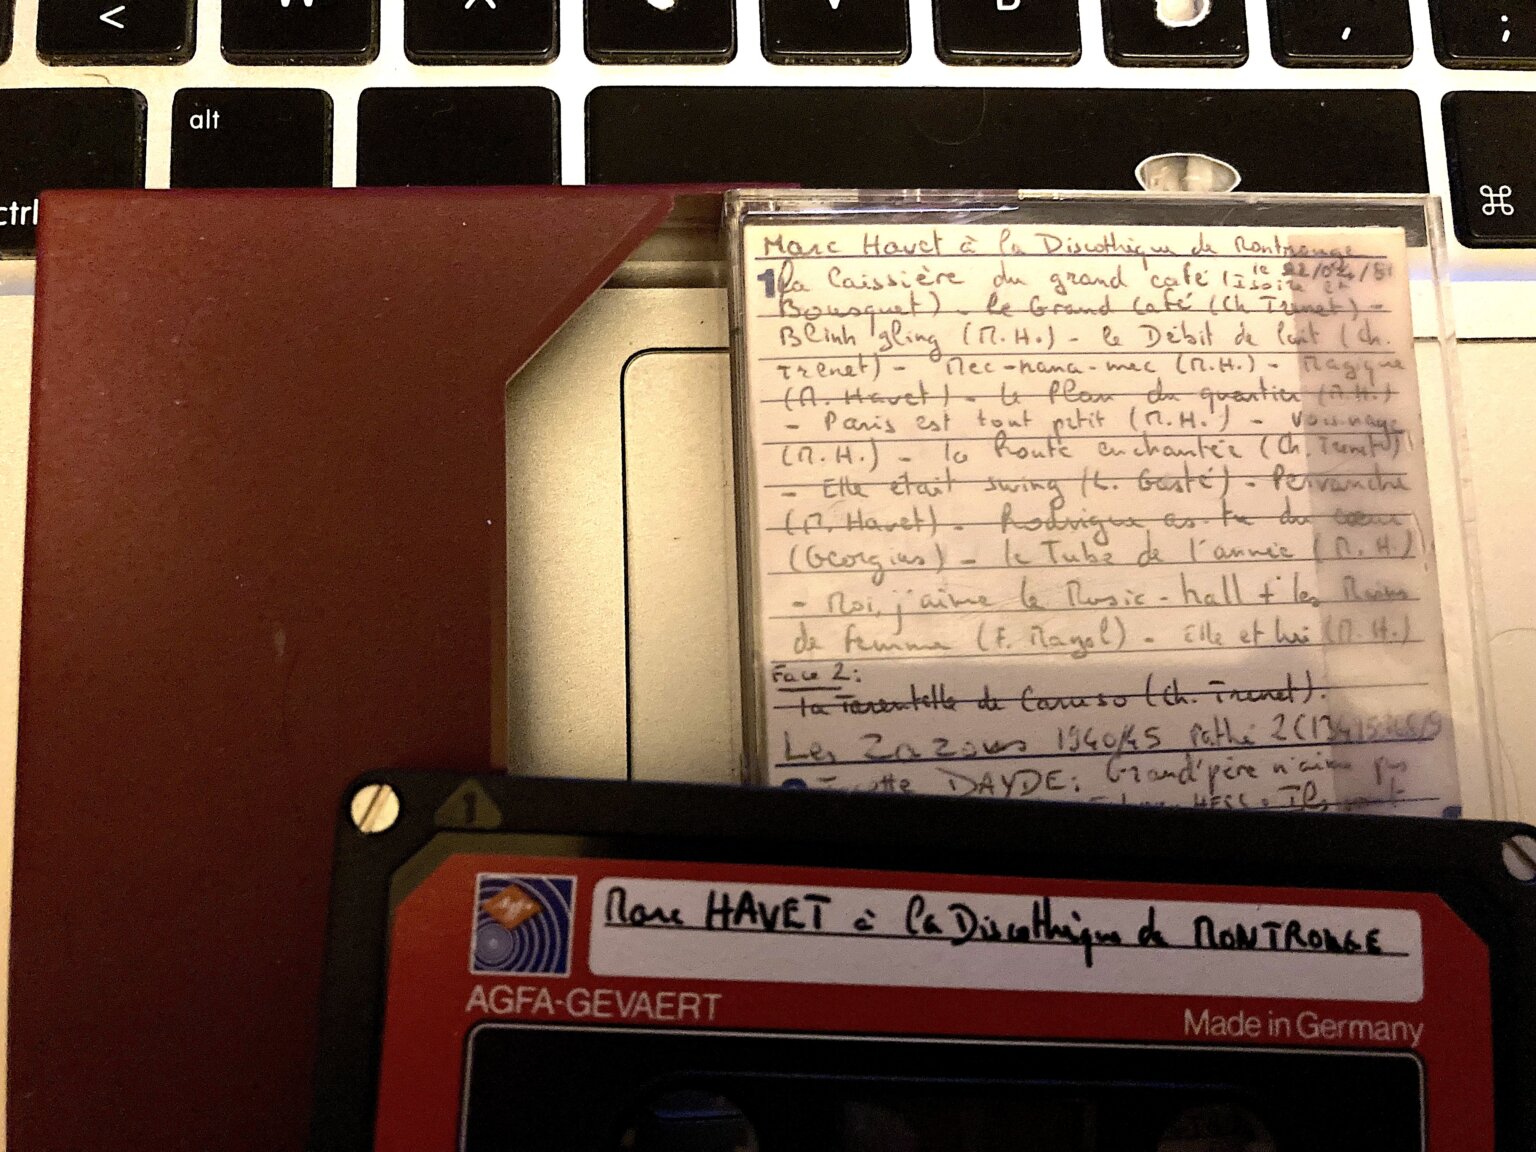 <
alt
ctrl
⌘
,
;
Marc Havet à la Discothèque de Montrouge
le 22/04/81
1 la Caissière du grand café (Izoird et
Bousquet) - le Grand Café (Ch Trenet) -
Blinh gling (M.H.) - le Débit de lait (Ch.
Trenet) - Mec-nana-mec (M.H.) - Magique
(M. Havet) - le Plan du quartier (M.H.)
- Paris est tout petit (M.H.) - Voisinage
(M.H.) - la Route enchantée (Ch. Trenet)
- Elle était swing (L. Gasté) - Pervenche
(M. Havet) - Rodrigue as-tu du cœur
(Georgius) - le Tube de l'année (M.H.)
- Moi, j'aime le Music-hall + les Mains
de femme (F. Mayol) - Elle et lui (M.H.)
Face 2:
la Tarentelle de Caruso (Ch. Trenet).
Les Zazous 1940/45 Pathé 2C
DAYDE: Grand'père n'aime pas
HESS: Ils
1
Marc HAVET à la Discothèque de MONTROUGE
AGFA-GEVAERT
Made in Germany